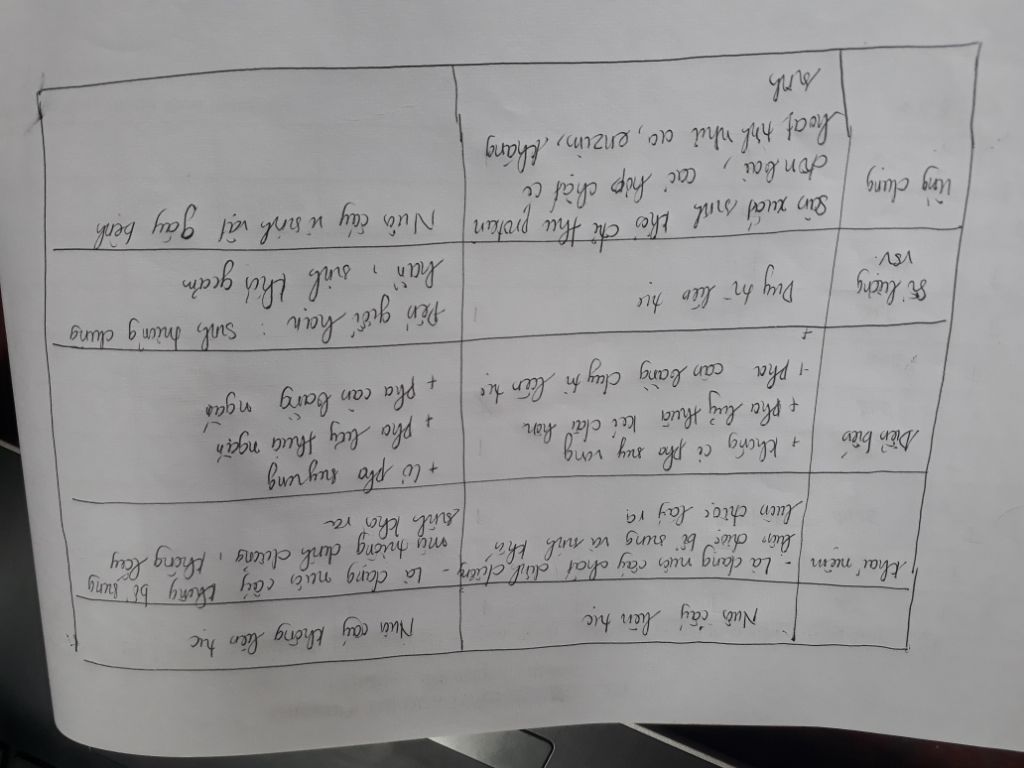 Nuôi cấy liên tục
Nuôi cấy không liên tục
khái niệm
- Là dạng nuôi cấy chất dinh dưỡng
luôn được bổ sung và sinh khối
luôn được lấy ra
- Là dạng nuôi cấy không bổ sung
môi trường dinh dưỡng, không lấy
sinh khối ra
Diễn biến
+ không có pha suy vong
+ pha luỹ thừa kéo dài hơn
+ pha cân bằng duy trì liên tục
+
+ có pha suy vong
+ pha luỹ thừa ngắn
+ pha cân bằng ngắn
Số lượng
VSV
Duy trì liên tục
Đến giới hạn : sinh trưởng dừng
hẳn, sinh khối giảm
Ứng dụng
Sản xuất sinh khối để thu protein
đơn bào, các hợp chất có
hoạt tính như aa, enzim, kháng
sinh
Nuôi cấy vi sinh vật gây bệnh